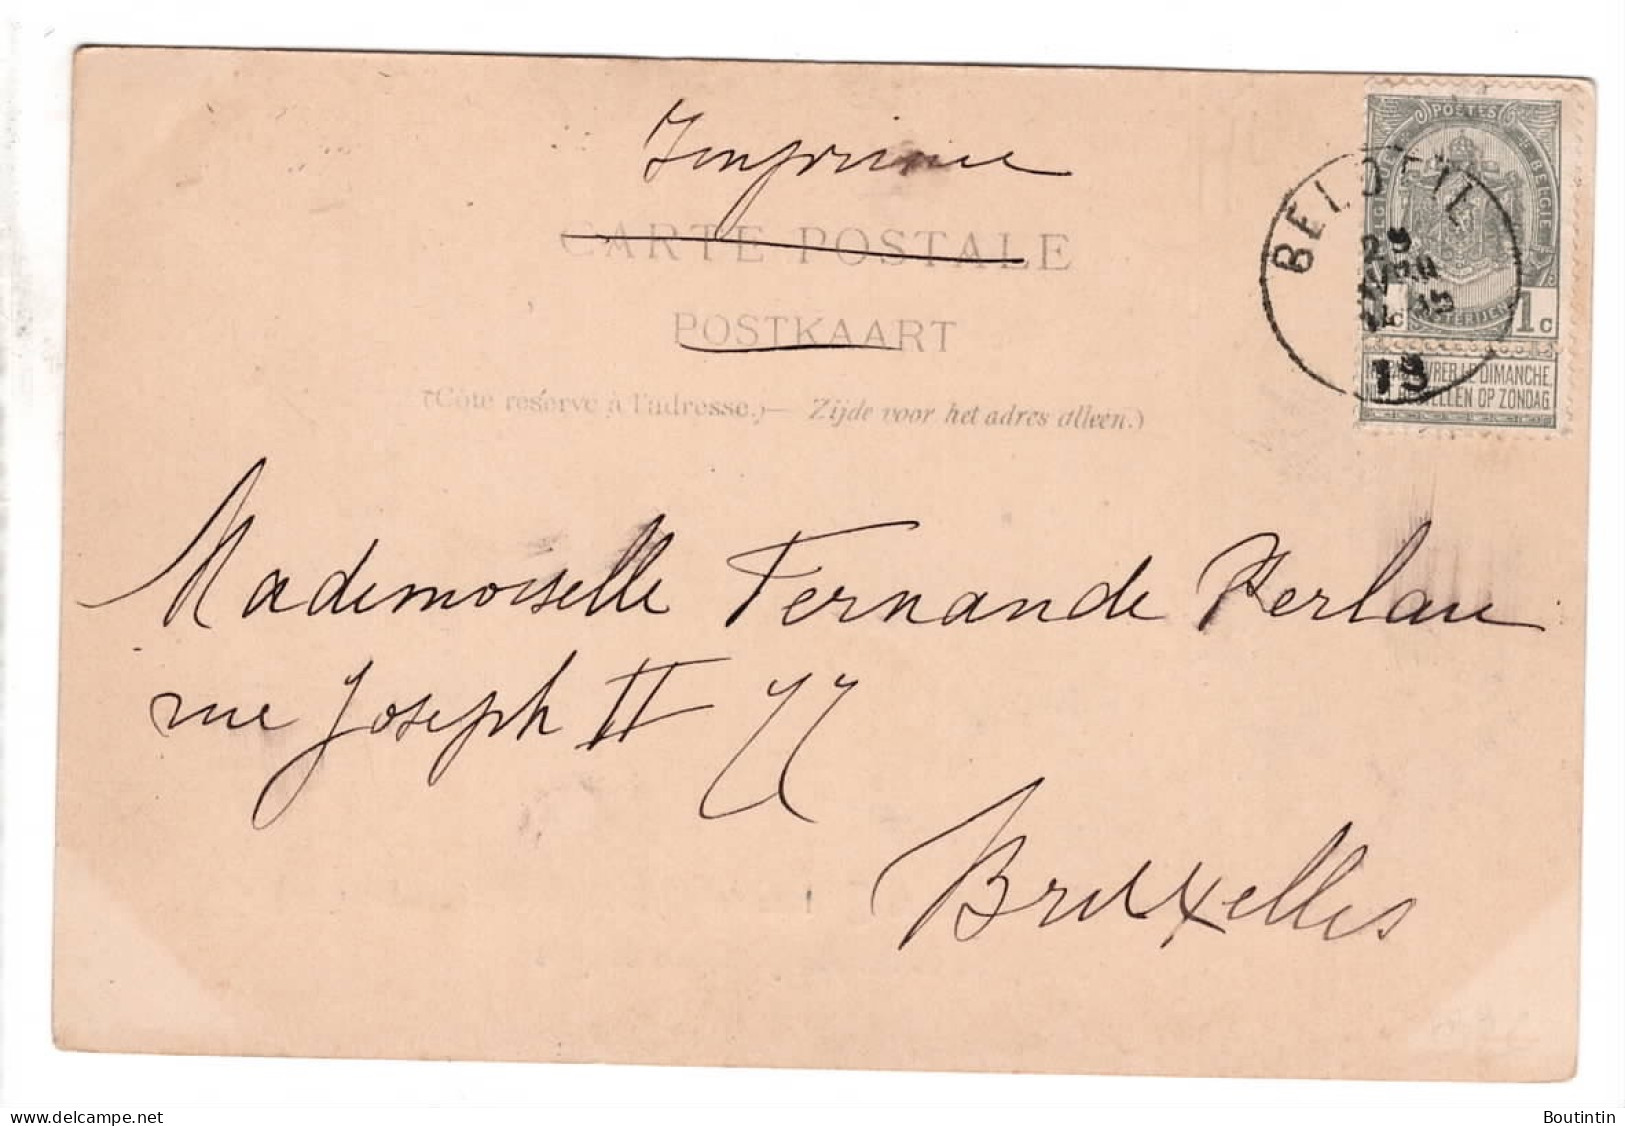 Imprimé
CARTE POSTALE
POSTKAART
(Côté réservé à l'adresse.) — Zijde voor het adres alleen.)
POSTES BELGIE
1c
NE PAS LIVRER LE DIMANCHE.
NIET BESTELLEN OP ZONDAG
BELOEIL
29
AVRIL
19
Mademoiselle Fernande
rue Joseph II 77
Bruxelles
www.delcampe.net
Boutintin